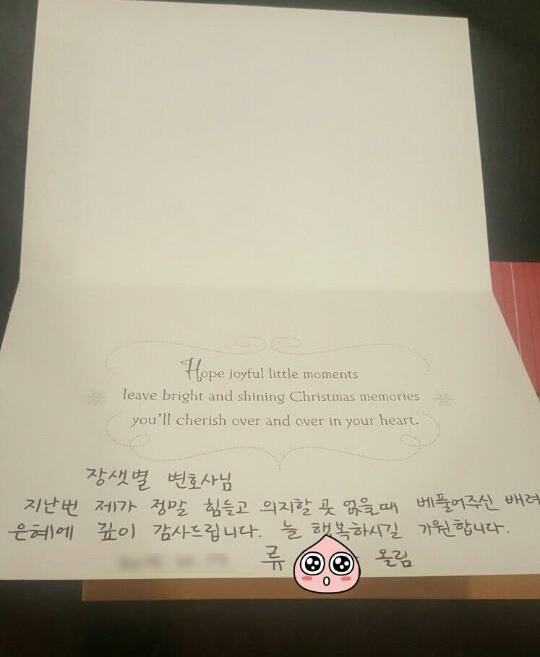 Hope joyful little moments
leave bright and shining Christmas memories
you'll cherish over and over in your heart.
장샛별 변호사님
지난번 제가 정말 힘들고 의지할 곳 없을때 베풀어주신 배려
은혜에 깊이 감사드립니다. 늘 행복하시길 기원합니다.
류 올림